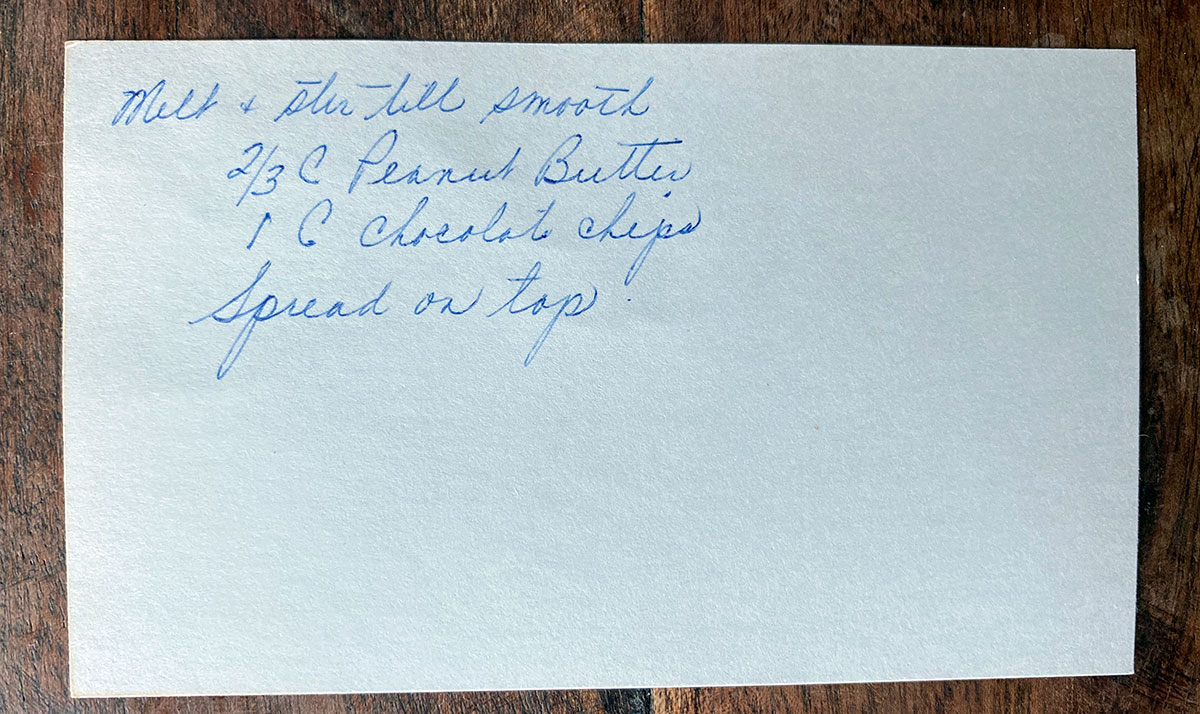 Melt + stir till smooth
2/3 C Peanut Butter
1 C chocolate chips
Spread on top